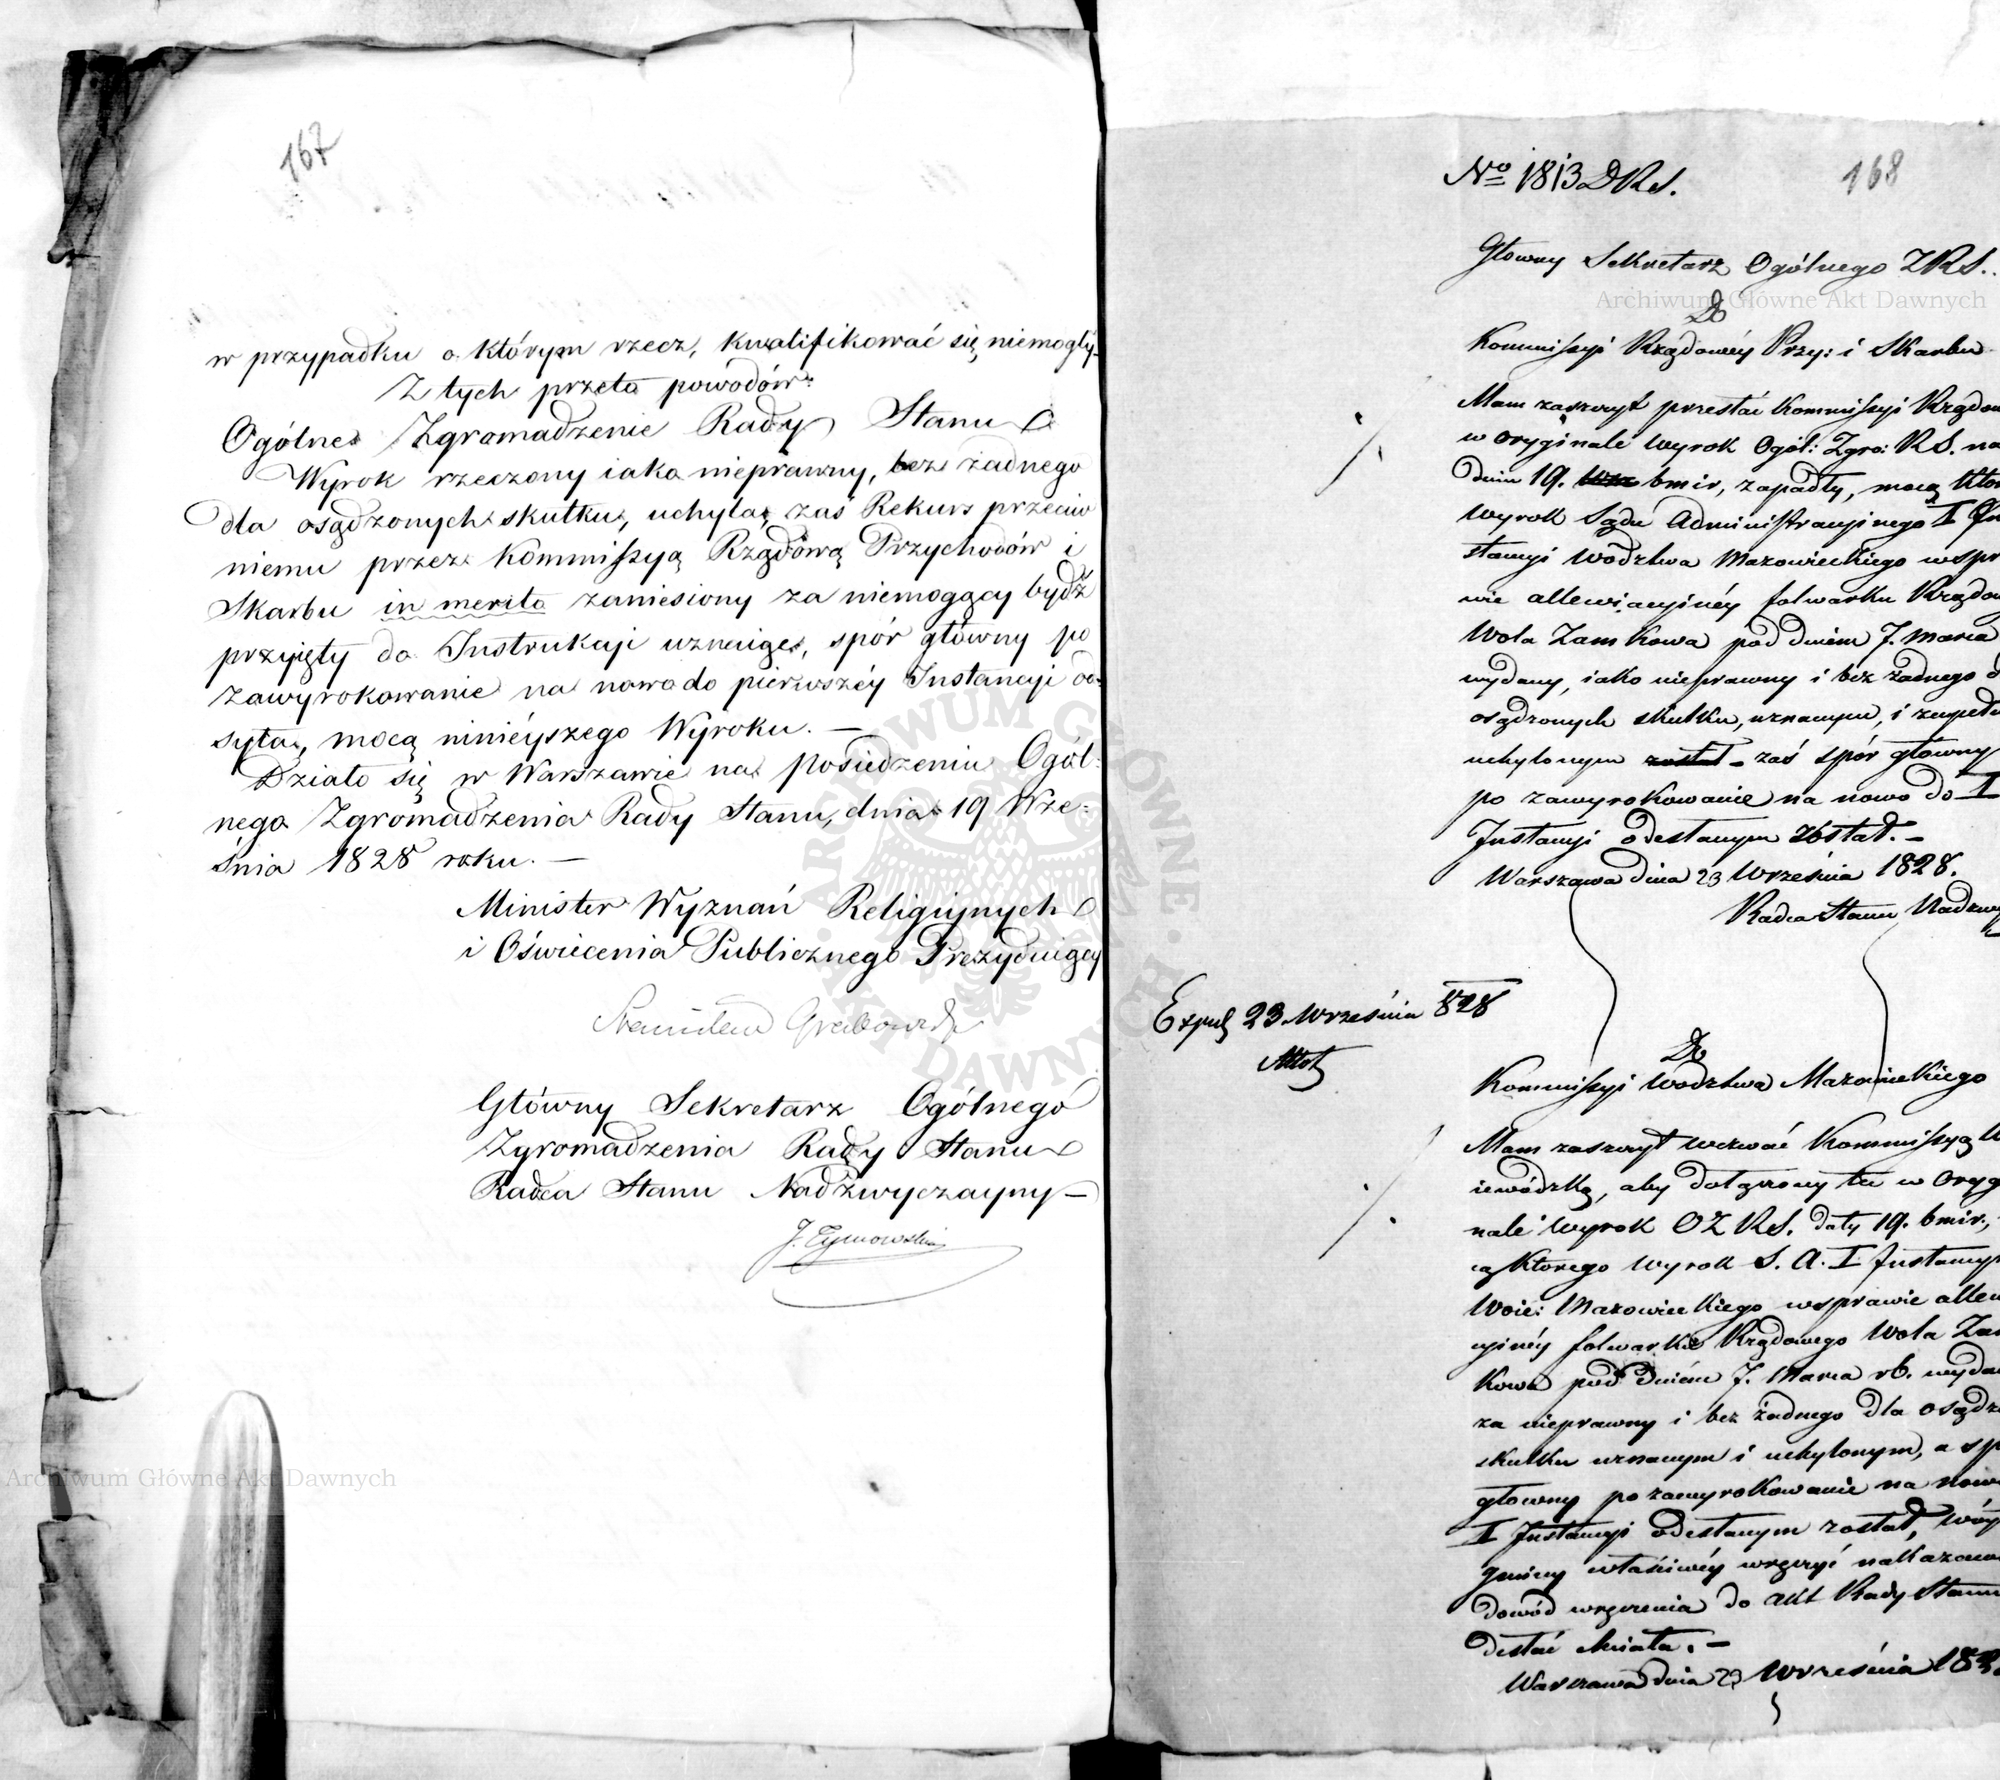 167
w przypadku o którym rzecz, kwalifikować się niemogły.
Z tych przeto powodów:
Ogólne Zgromadzenie Rady Stanu
Wyrok rzeczony iako nieprawny, bez żadnego
dla osądzonych skutku, uchyla, zaś Rekurs przeciw
niemu przez Kommissyą Rządową Przychodów i
Skarbu in merito zaniesiony za niemogący bydź
przyięty do Instrukcji uznaiąc, spór główny po
zawyrokowanie na nowo do pierwszéy Instancji od-
syła, mocą ninieyszego Wyroku. —
Działo się w Warszawie na posiedzeniu Ogól-
nego Zgromadzenia Rady Stanu, dnia 19 Wrze-
śnia 1828 roku. —
Minister Wyznań Religiynych
i Oświecenia Publicznego Prezyduiący
Stanisław Grabowski
Główny Sekretarz Ogólnego
Zgromadzenia Rady Stanu
Radca Stanu Nadzwyczayny —
J. Tymowski
No 1813 DRS.
168
Głowny Sekretarz Ogólnego ZRS.
Do
Kommissyi Rządowéy Przy: i Skarbu
Mam zaszczyt przesłać Kommissyi Rządow
w oryginale wyrok Ogól: Zgro: RS. na
dniu 19. bmir, zapadły, mocą któr
wyrok Sądu Administracyinego I In
stancyi Wodztwa Mazowieckiego wspr
wie allewiacyinéy folwarku Rządow
Wola Zamkowa pod dniem 7. Marca
wydany, iako nieprawny i bez żadnego d
osądzonych skutku, uznanym, i zupełn
uchylonym został - zaś spór główny
po zawyrokowanie na nowo do I
Instancyi odesłanym został. —
Warszawa dnia 23 Września 1828.
Radca Stanu Nadzwy
Exped 23 Września 828
Do
Kommissyi Wodztwa Mazowieckiego
Mam zaszczyt wezwać Kommissyą W
iewódzką, aby dołączony tu w oryg
nale wyrok OZRS. daty 19. bmir.,
cą którego wyrok S. A. I Instancyi
Woie: Mazowieckiego wsprawie allew
cyinéy folwarku Rządowego Wola Zam
kowa pod dniem 7. Marca rb. wydan
za nieprawny i bez żadnego dla osądzo
skutku uznanym i uchylonym, a sp
głowny po zawyrokowanie na nowo
I Instancyi odesłanym został, wóy
gminy właściwéy wręczyć nakazaw
dowód wręczenia do akt Rady Stanu
desłać chciała. —
Warszawa dnia 23 Września 1828
Archiwum Główne Akt Dawnych
Archiwum Główne Akt Dawnych
ARCHIWUM GŁÓWNE AKT DAWNYCH